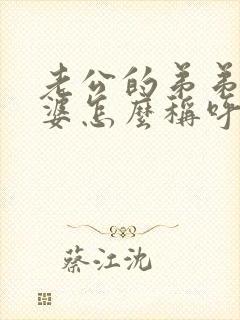 老公的弟弟
婆怎麼稱呼
蔡江沈